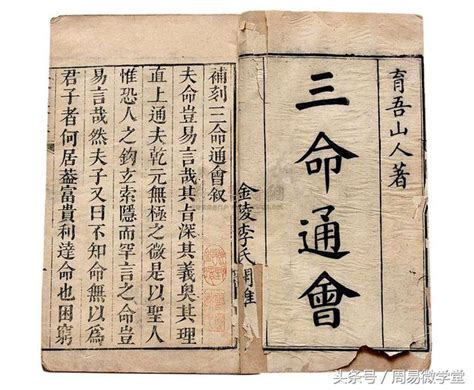 育吾山人著
三命通會
金陵李氏
補刻三命通會叙
夫命豈易言哉其旨深其義奧其理
直上通夫乾元無極之微是以聖人
惟恐人之鉤玄索隱而罕言之命豈
易言哉然夫子又曰不知命無以爲
君子者何居葢富貴利達命也困窮
头条号/周易微学堂